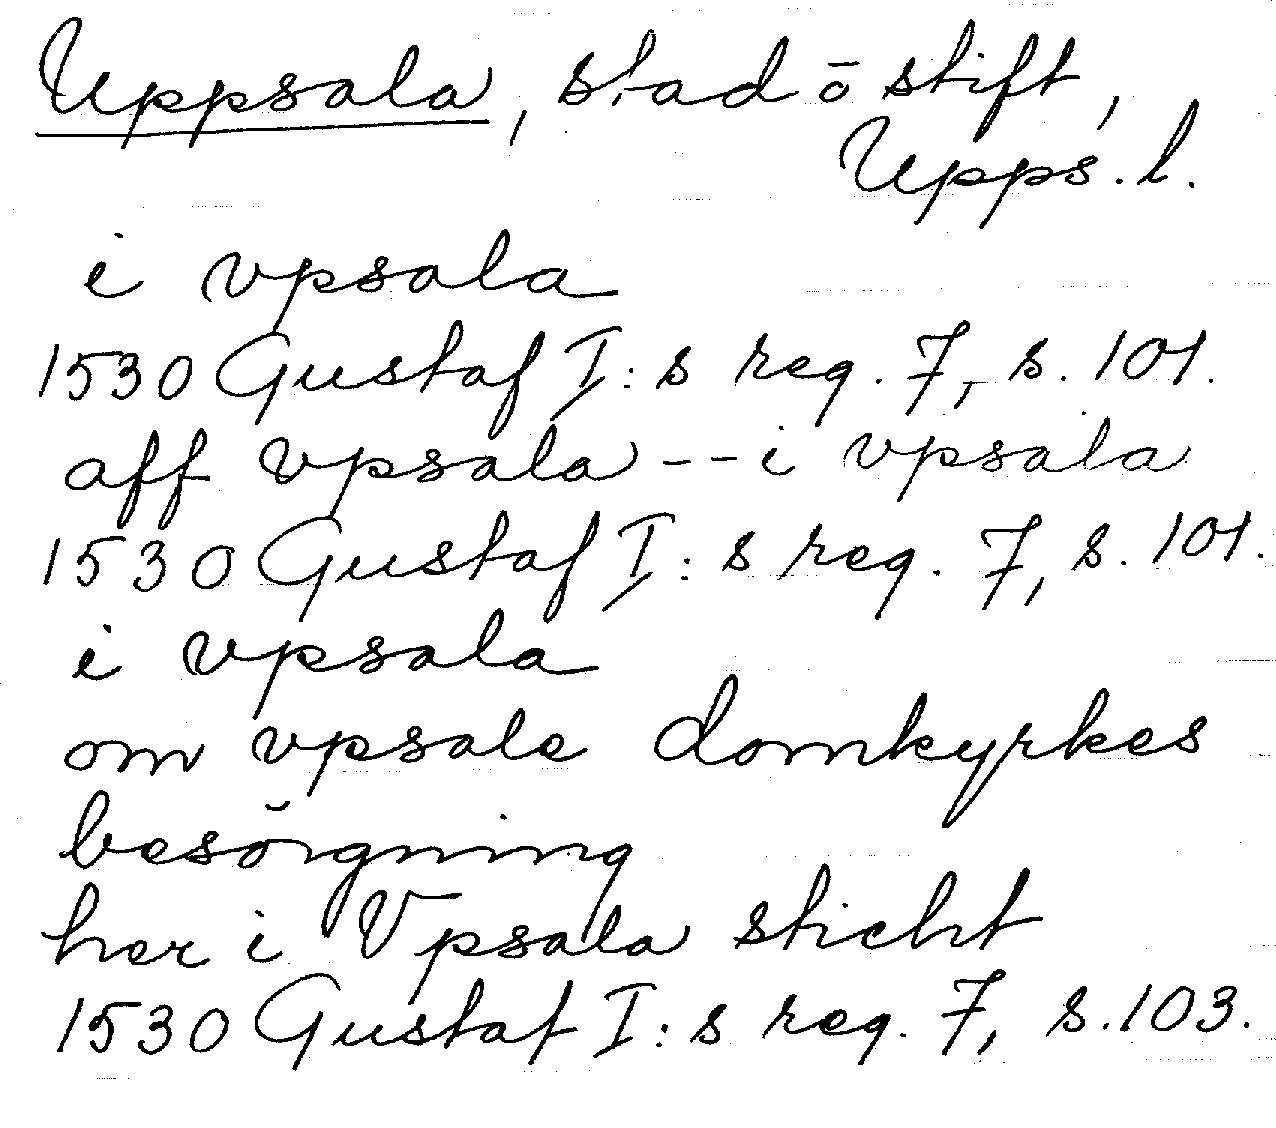 Uppsala, stad ō stift,
Upps. l.
i vpsala
1530 Gustaf I:s reg. 7, s. 101.
aff vpsala -- i vpsala
1530 Gustaf I:s reg. 7, s. 101.
i vpsala
om vpsale domkyrkes
besörgning
her i Vpsala sticht
1530 Gustaf I:s reg. 7, s. 103.